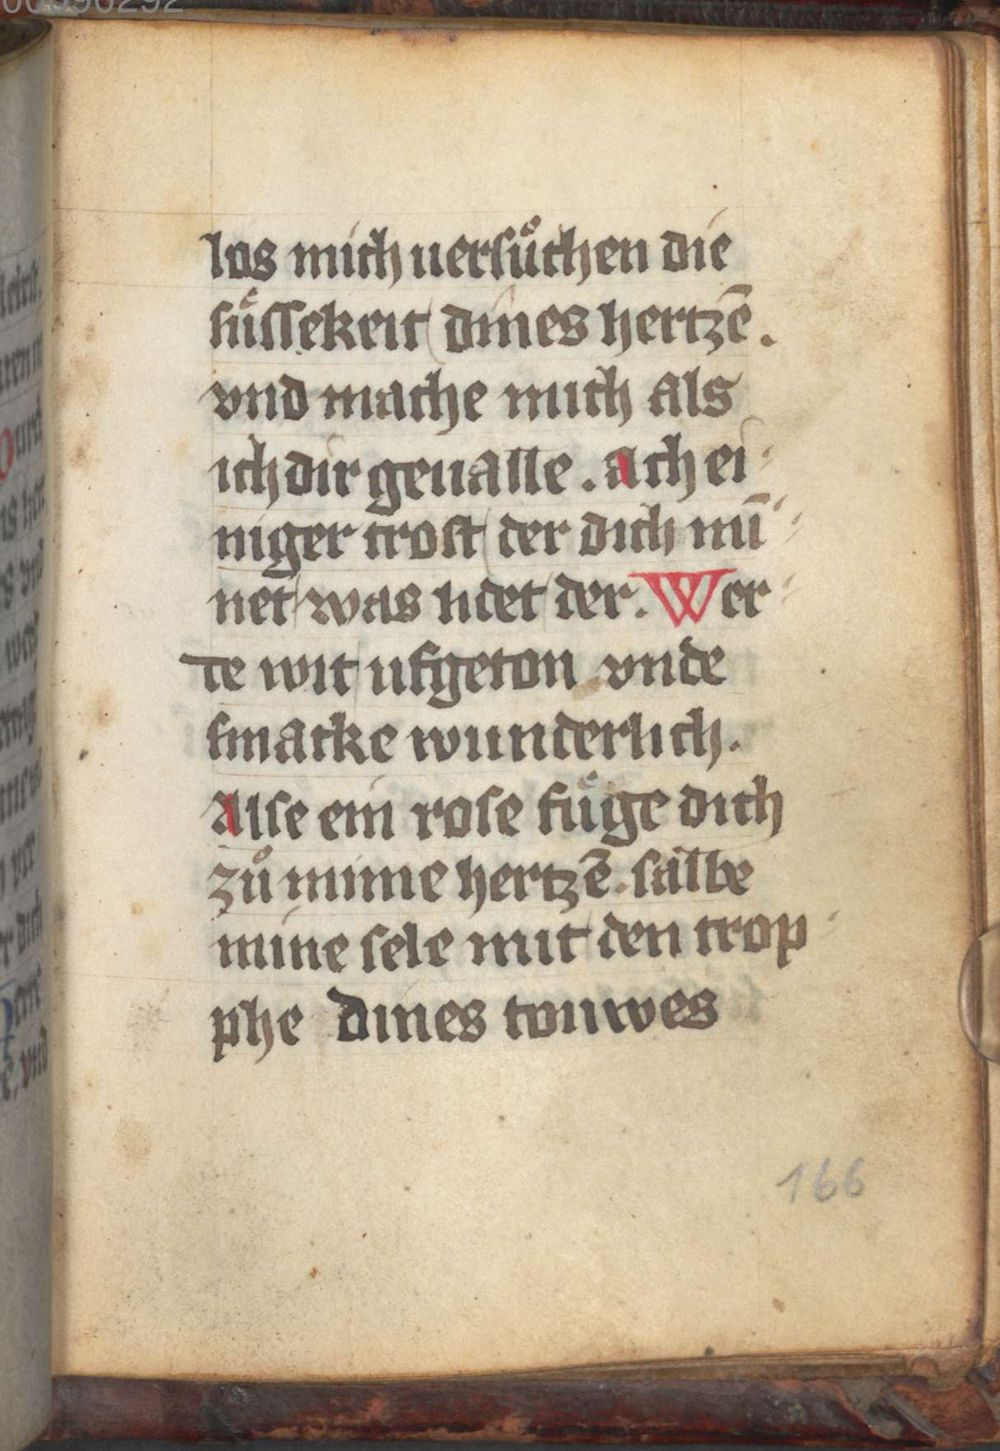 los mich uersuͦchen die
suͤssekeit dines hertzē.
vnd mache mich als
ich dir geualle. Ach ei
niger trost der dich mī
net was lidet der. Wer
de wit ufgeton vnde
smacke wunderlich.
Alse ein rose fuͤge dich
zuͦ mime hertzē. salbe
mine sele mit den trop
phe dines touwes
166